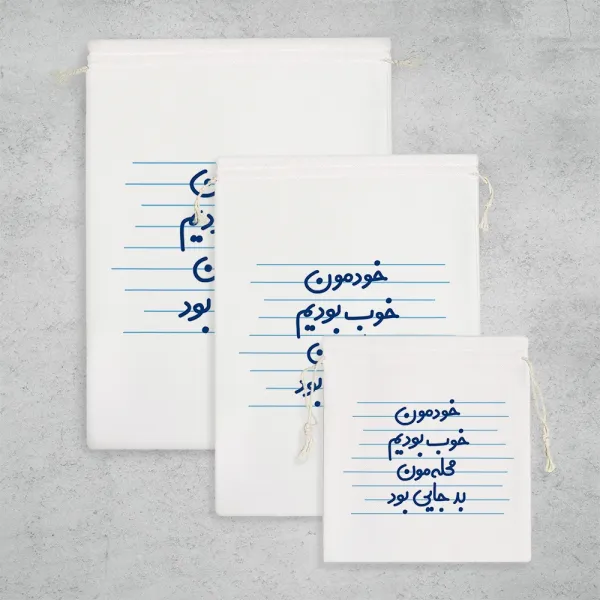 بود
خودمون
خوب بودیم
خودمون
خوب بودیم
محله‌مون
بد جایی بود